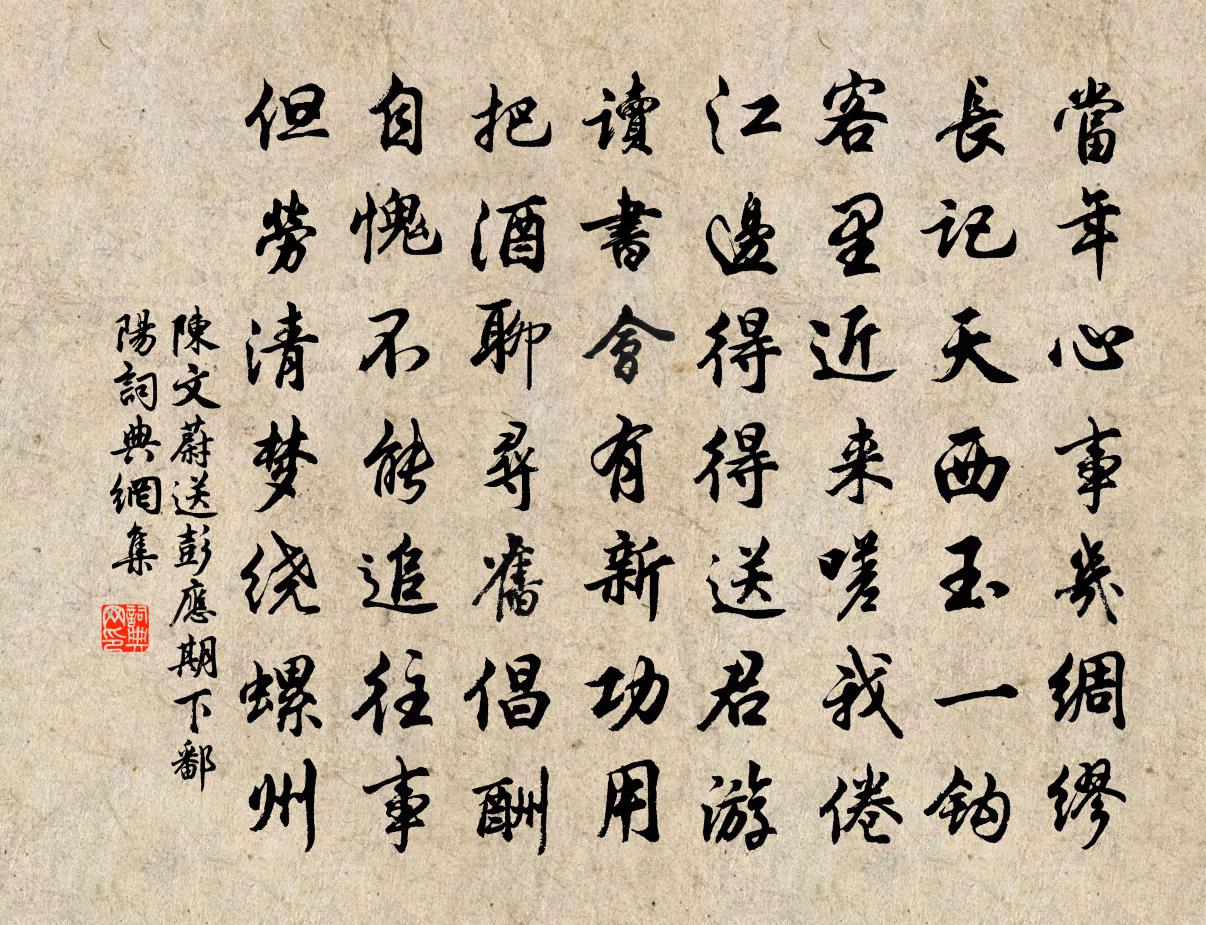 當年心事幾綢繆
長記天西玉一鈎
客里近来嗟我倦
江邊得得送君游
讀書會有新功用
把酒聊尋舊倡酬
自愧不能追往事
但勞清梦绕螺州
陳文蔚送彭應期下鄱
陽詞典網集
詞典
网印